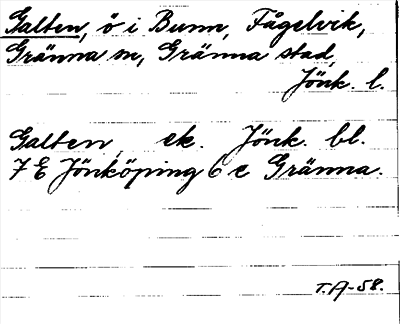 Galten, ö i Bunn, Fågelvik,
Gränna sn, Gränna stad,
Jönk. l.
Galten, ek. Jönk. bl.
7 E Jönköping 6 e Gränna.
T.A-58.